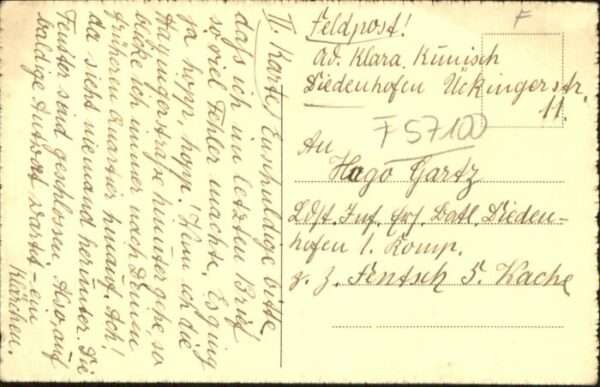 II. Karte! Enschuldige bitte
dass ich im letzten Brief
so viel Fehler machte. Es ging
ja hopp, hopp. Wenn ich die
Hayingerstraße hinunter gehe, so
blicke ich immer nach Deinem
früheren Quartier hinauf. Ach!
da sieht niemand herunter. Die
Fenster sind geschlossen. Also, auf
baldige Antwort wartet - ein
Klärchen.
F
Feldpost!
Ad. Klara Künisch
Diedenhofen Ückingerstr.
11.
F 57100
An
Hugo Gartz
Ldst. Inf. Ers. Batl. Dieden-
hofen 1. Komp.
z. Z. Fentsch 5. Wache